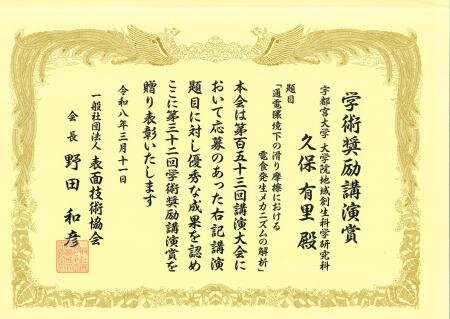 学術奨励講演賞
宇都宮大学 大学院地域創生科学研究科
久保 有里 殿
題目
「通電環境下の滑り摩擦における
電食発生メカニズムの解析」
本会は第百五十三回講演大会に
おいて応募のあった右記講演
題目に対し優秀な成果を認め
ここに第三十二回学術奨励講演賞を
贈り表彰いたします
令和八年三月十一日
一般社団法人 表面技術協会
会長 野田 和彦